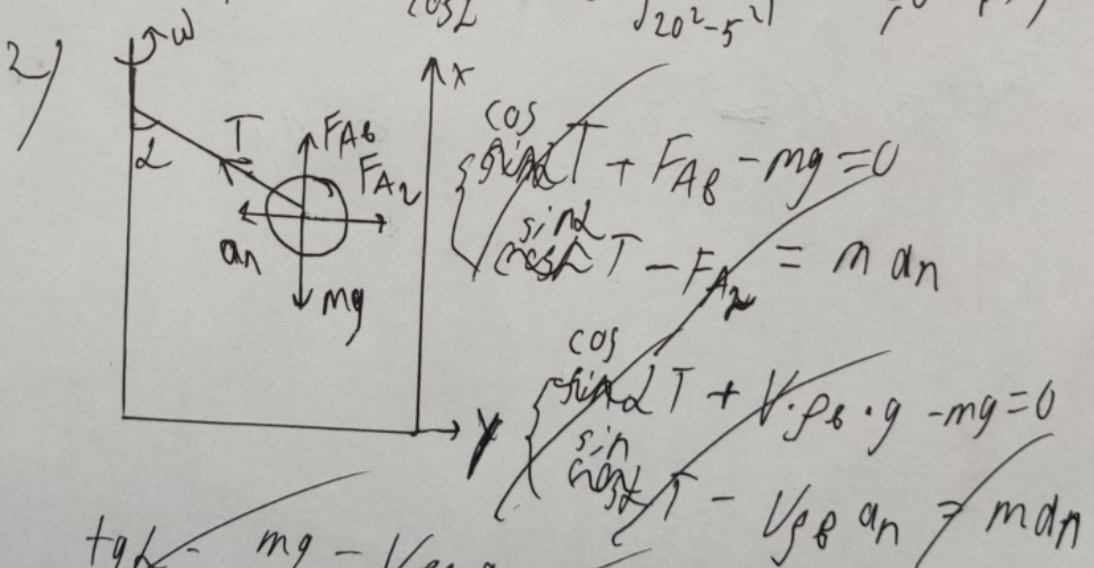 cosα √20²-5²
2)
ω
x
α
T
F_Aв
F_Aг
a_n
mg
y
cos
sinα T + F_Aв - mg = 0
sinα
cosα T - F_Aг = m a_n
cos
sinα T + V·ρв·g - mg = 0
sin
cosα T - Vρв a_n = m a_n
tgα = mg - Vρв g